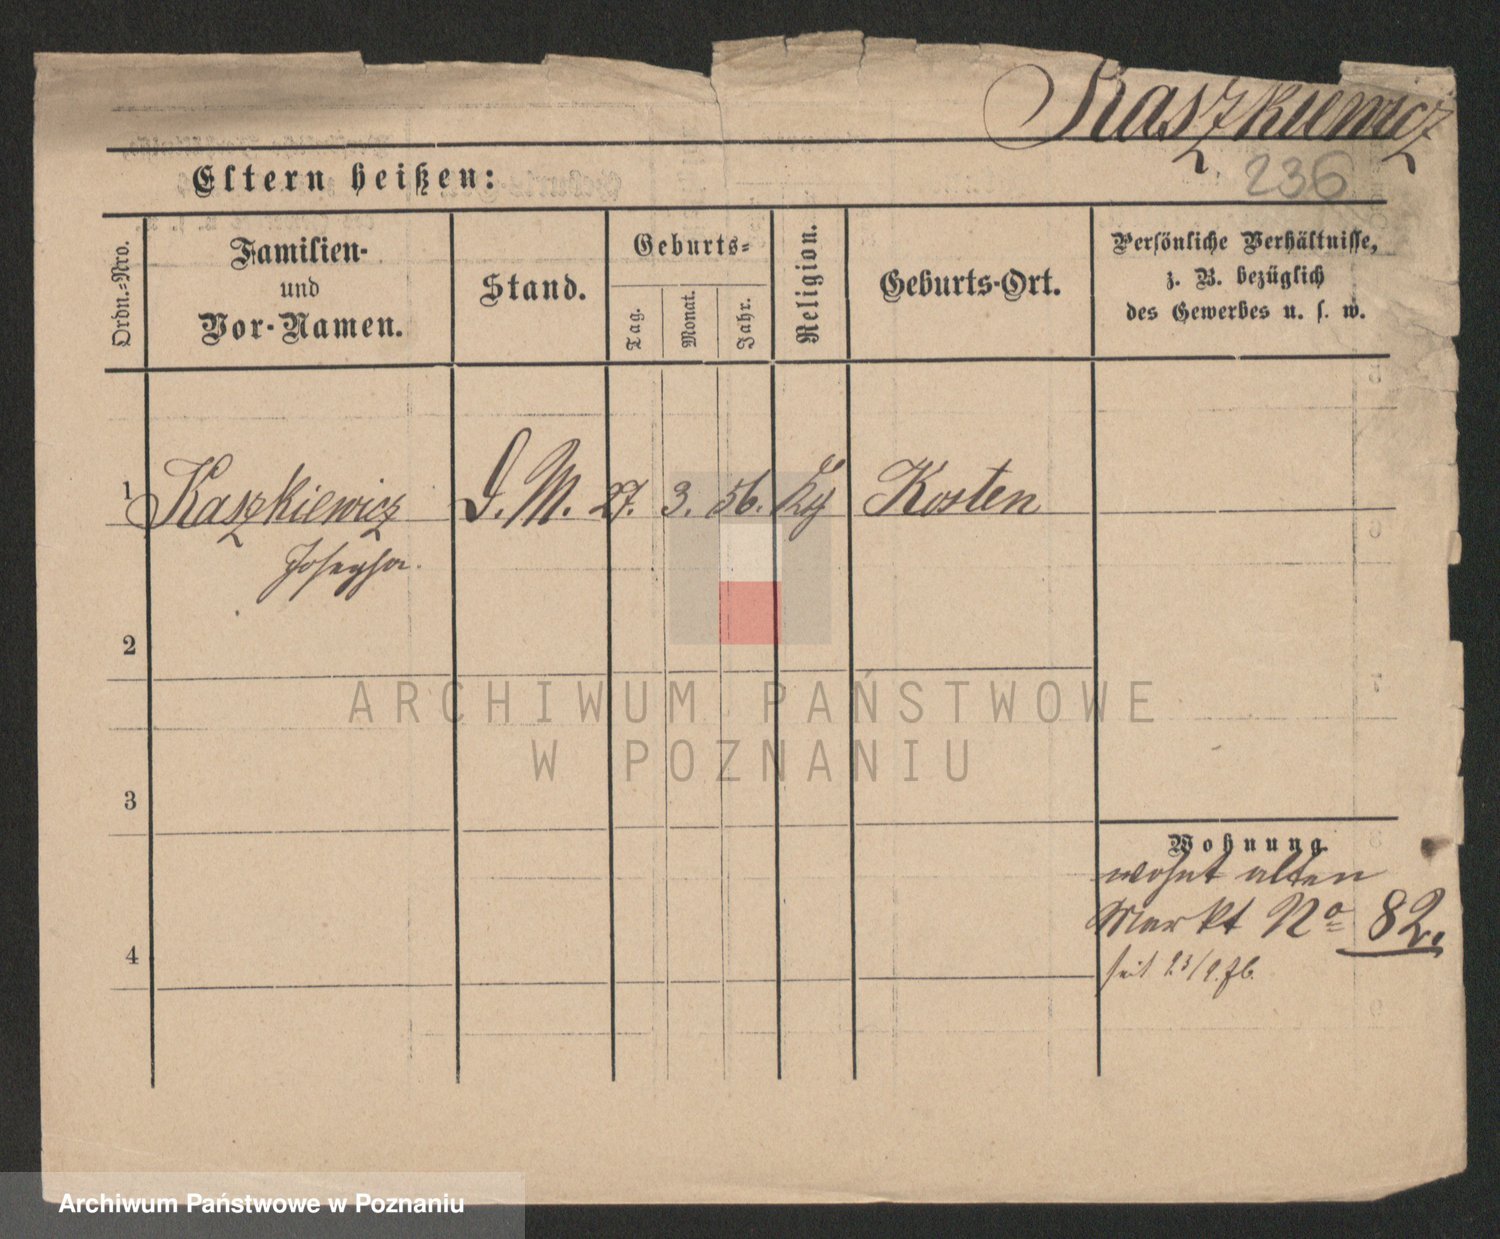 Kaszkiewicz
236
Eltern heißen:
Ordn.-Nro.
Familien-
und
Vor-Namen.
Stand.
Geburts-
Tag.
Monat.
Jahr.
Religion.
Geburts-Ort.
Persönliche Verhältnisse,
z. B. bezüglich
des Gewerbes u. s. w.
1 Kaszkiewicz D. M. 27. 3. 56. Kosten
Josepha.
2
3
4
Wohnung
wohnt alten
Markt No 82.
seit 23/9.76.
ARCHIWUM PAŃSTWOWE
W POZNANIU
Archiwum Państwowe w Poznaniu